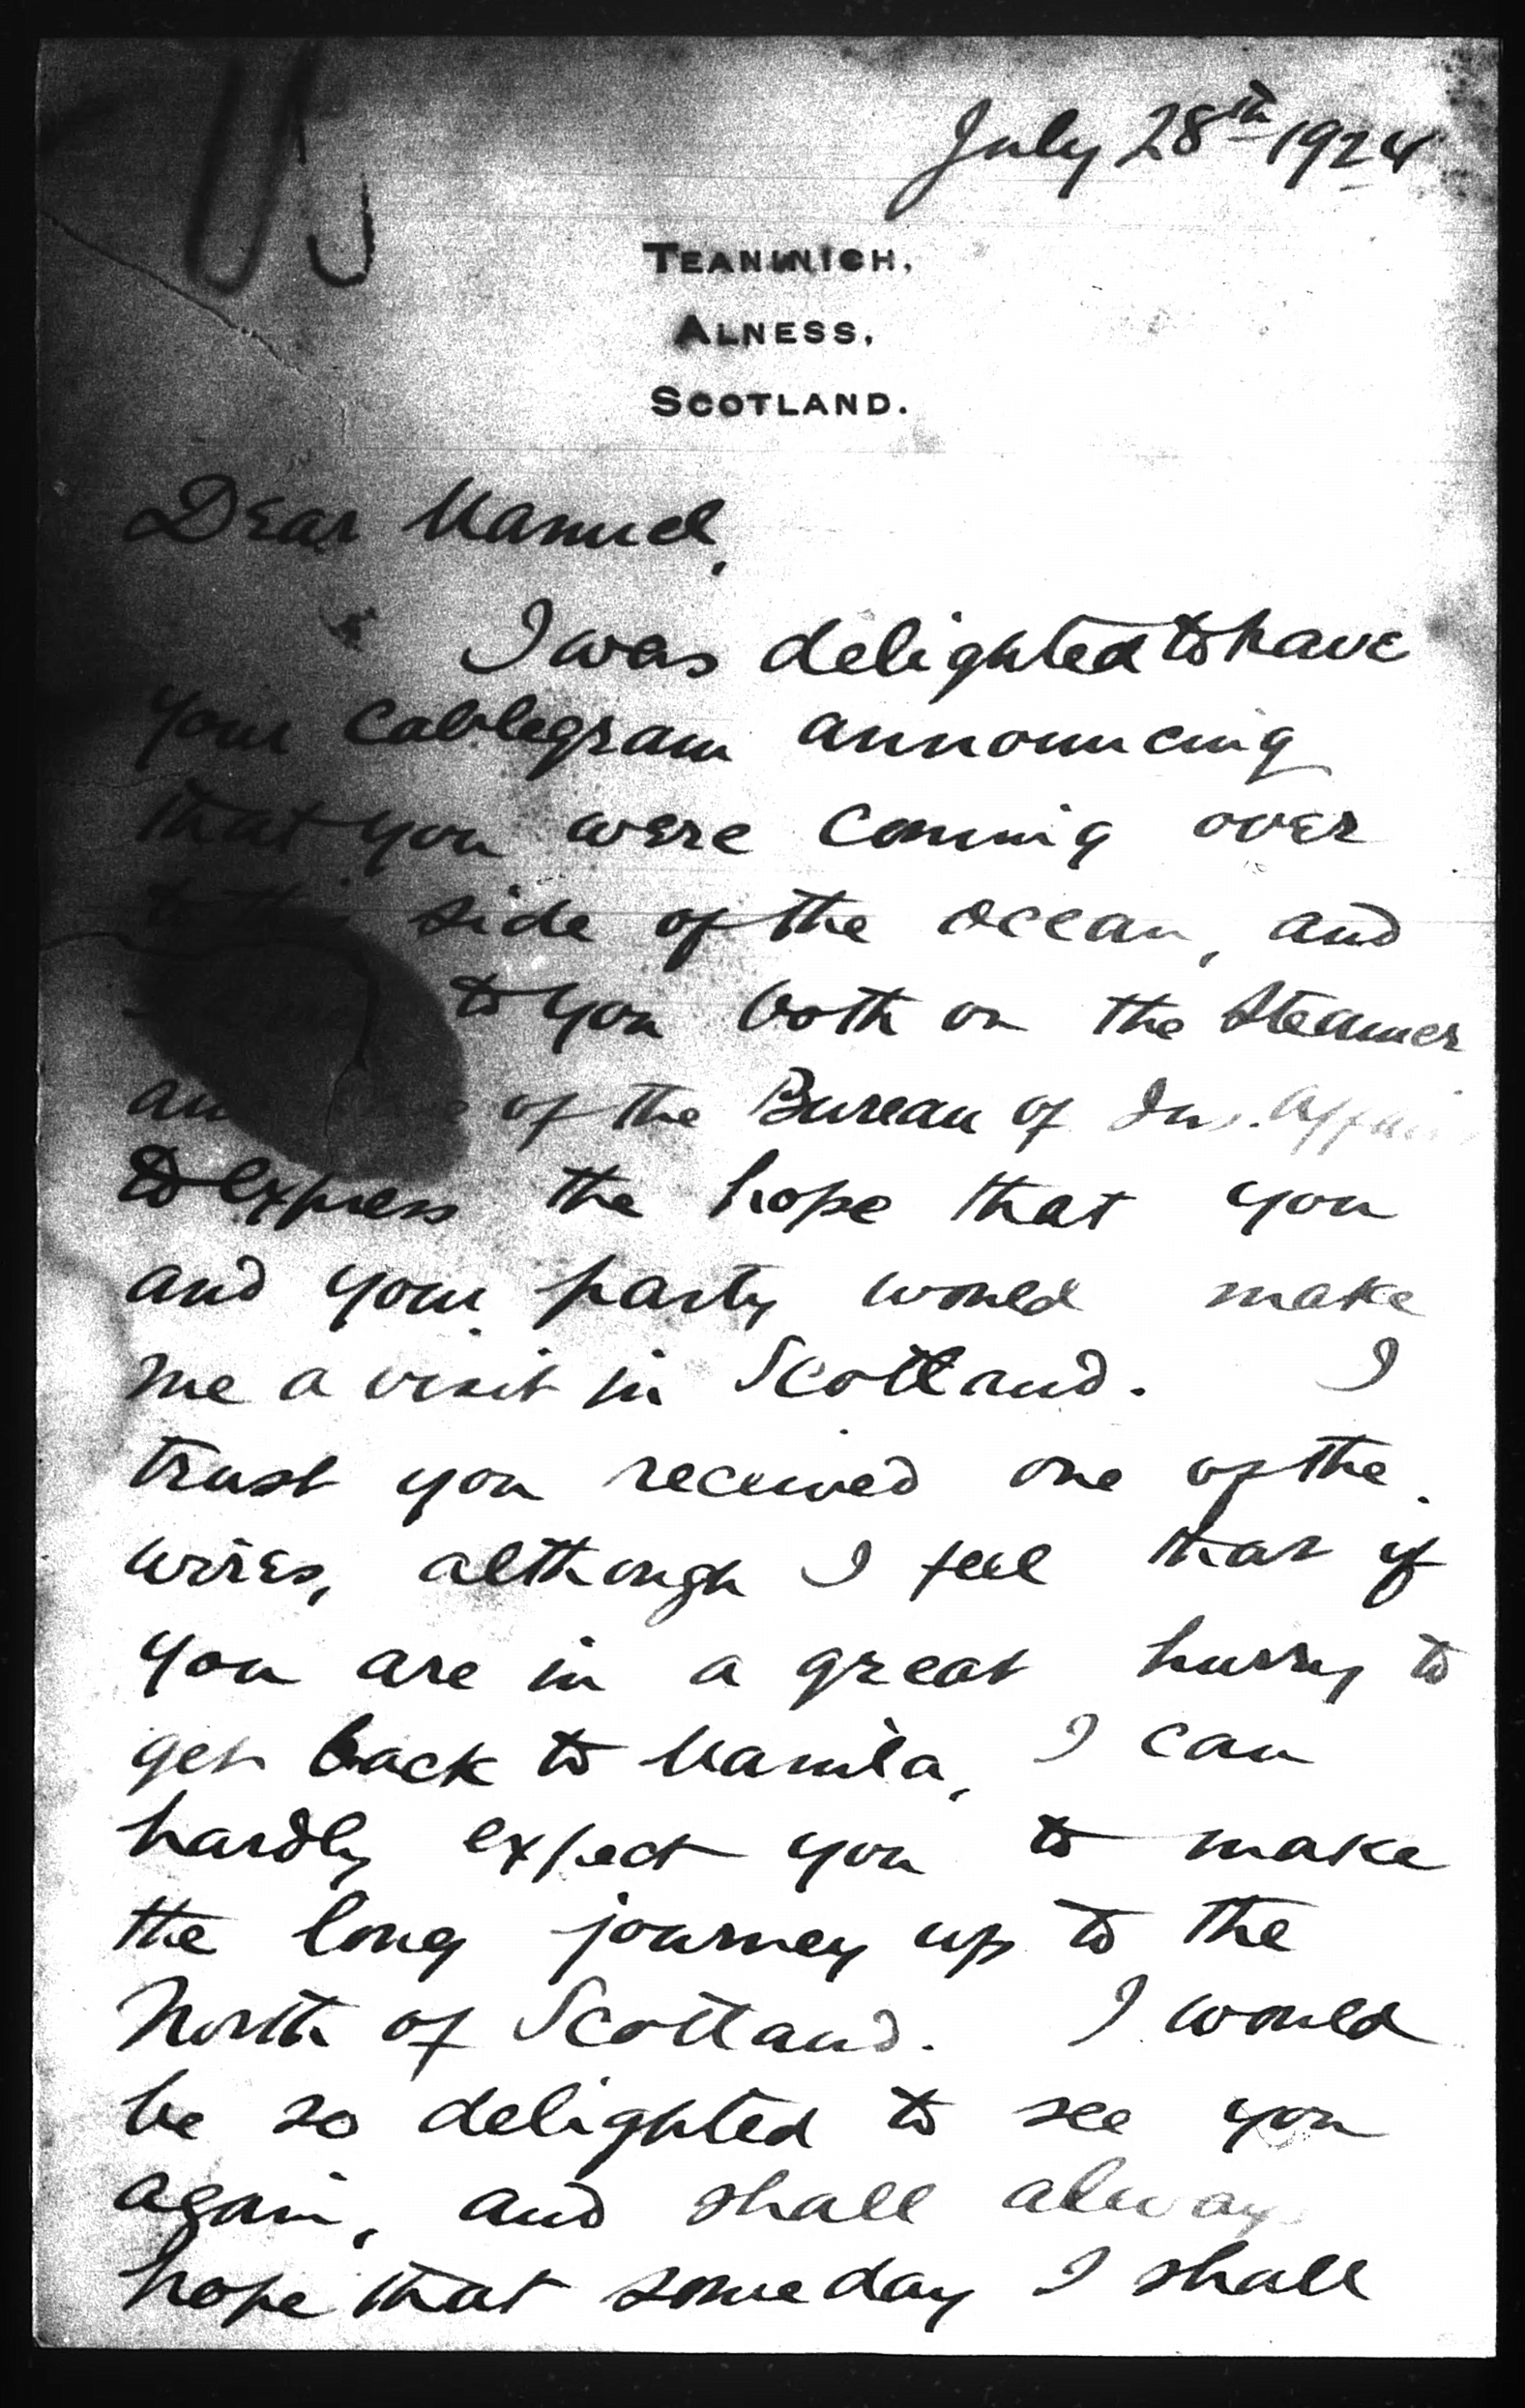 July 28th 1924
TEANINICH,
ALNESS,
SCOTLAND.
Dear Manuel,
I was delighted to have
your cablegram announcing
that you were coming over
to this side of the ocean, and
to you both on the steamer
and of the Bureau of Ins. Affairs
to express the hope that you
and your party would make
me a visit in Scotland. I
trust you received one of the
wires, although I feel that if
you are in a great hurry to
get back to Manila, I can
hardly expect you to make
the long journey up to the
North of Scotland. I would
be so delighted to see you
again, and shall always
hope that some day I shall